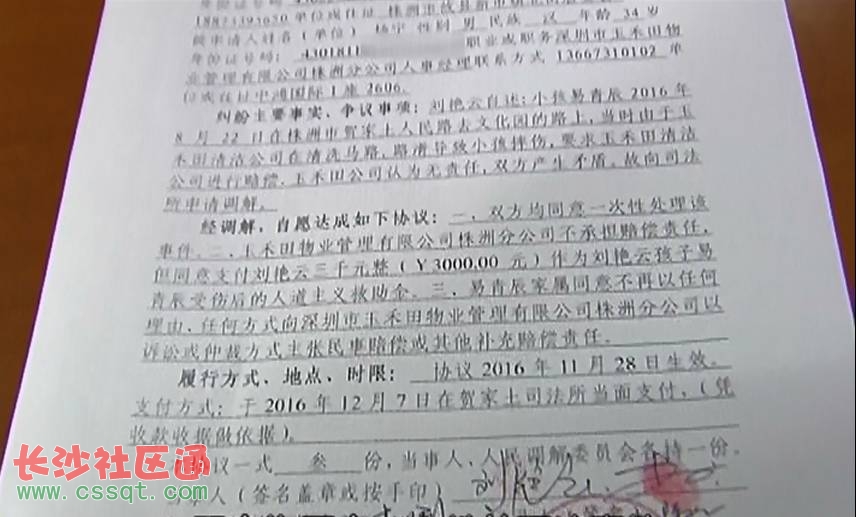 18873395650单位或住址 株洲市
被申请人姓名(单位) 杨宇 性别 男 民族 汉 年龄 34 岁
身份证号码: 4301811 职业或职务深圳市玉禾田物
业管理有限公司株洲分公司人事经理联系方式 13667310102 单
位或住址中鸿国际1座2606.
纠纷主要事实、争议事项:刘艳云自述:小孩易青辰2016 年
8 月 22 日在株洲市贺家土人民路去文化园的路上,当时由于玉
禾田清洁公司在清洗马路,路滑导致小孩摔伤,要求玉禾田清洁
公司进行赔偿.玉禾田公司认为无责任,双方产生矛盾。故向司法
所申请调解。
经调解,自愿达成如下协议:一、双方均同意一次性处理该
事件.二、玉禾田物业管理有限公司株洲分公司不承担赔偿责任,
但同意支付刘艳云三千元整(¥3000.00 元)作为刘艳云孩子易
青辰受伤后的人道主义救助金.三、易青辰家属同意不再以任何
理由、任何方式向深圳市玉禾田物业管理有限公司株洲分公司以
诉讼或仲裁方式主张民事赔偿或其他补充赔偿责任.
履行方式、地点、时限: 协议 2016 年 11 月 28 日生效。
支付方式:于 2016 年 12 月 7 日在贺家土司法所当面支付,(凭
收款收据做依据)。
协议一式 叁 份,当事人、人民调解委员会各持一份。
人(签名盖章或按手印)
长沙社区通
www.cssqt.com